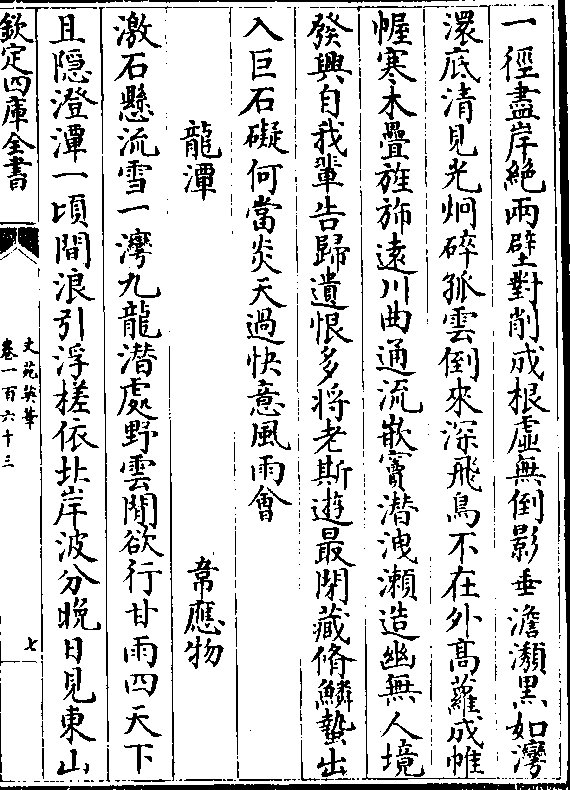 一徑盡岸絶兩壁對削成根虛無倒影垂澹瀩黒如灣
澴底清見光炯碎孤雲倒來深飛鳥不在外髙蘿成帷
幄寒木疊旌斾逺川曲通流嵌竇潜洩瀨造幽無人境
發興自我輩告歸遺恨多將老斯遊最閉藏脩鱗蟄出
入巨石礙何當炎天過快意風雨會
龍潭　韋應物
激石懸流雪一灣九龍潜處野雲閒欲行甘雨四天下
且隱澄潭一頃間浪引浮槎依北岸波分晚日見東山
欽定四庫全書
文苑英華
卷一百六十三
七